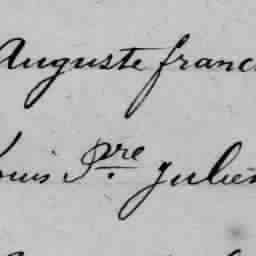 Auguste franc
ouis Pre julien